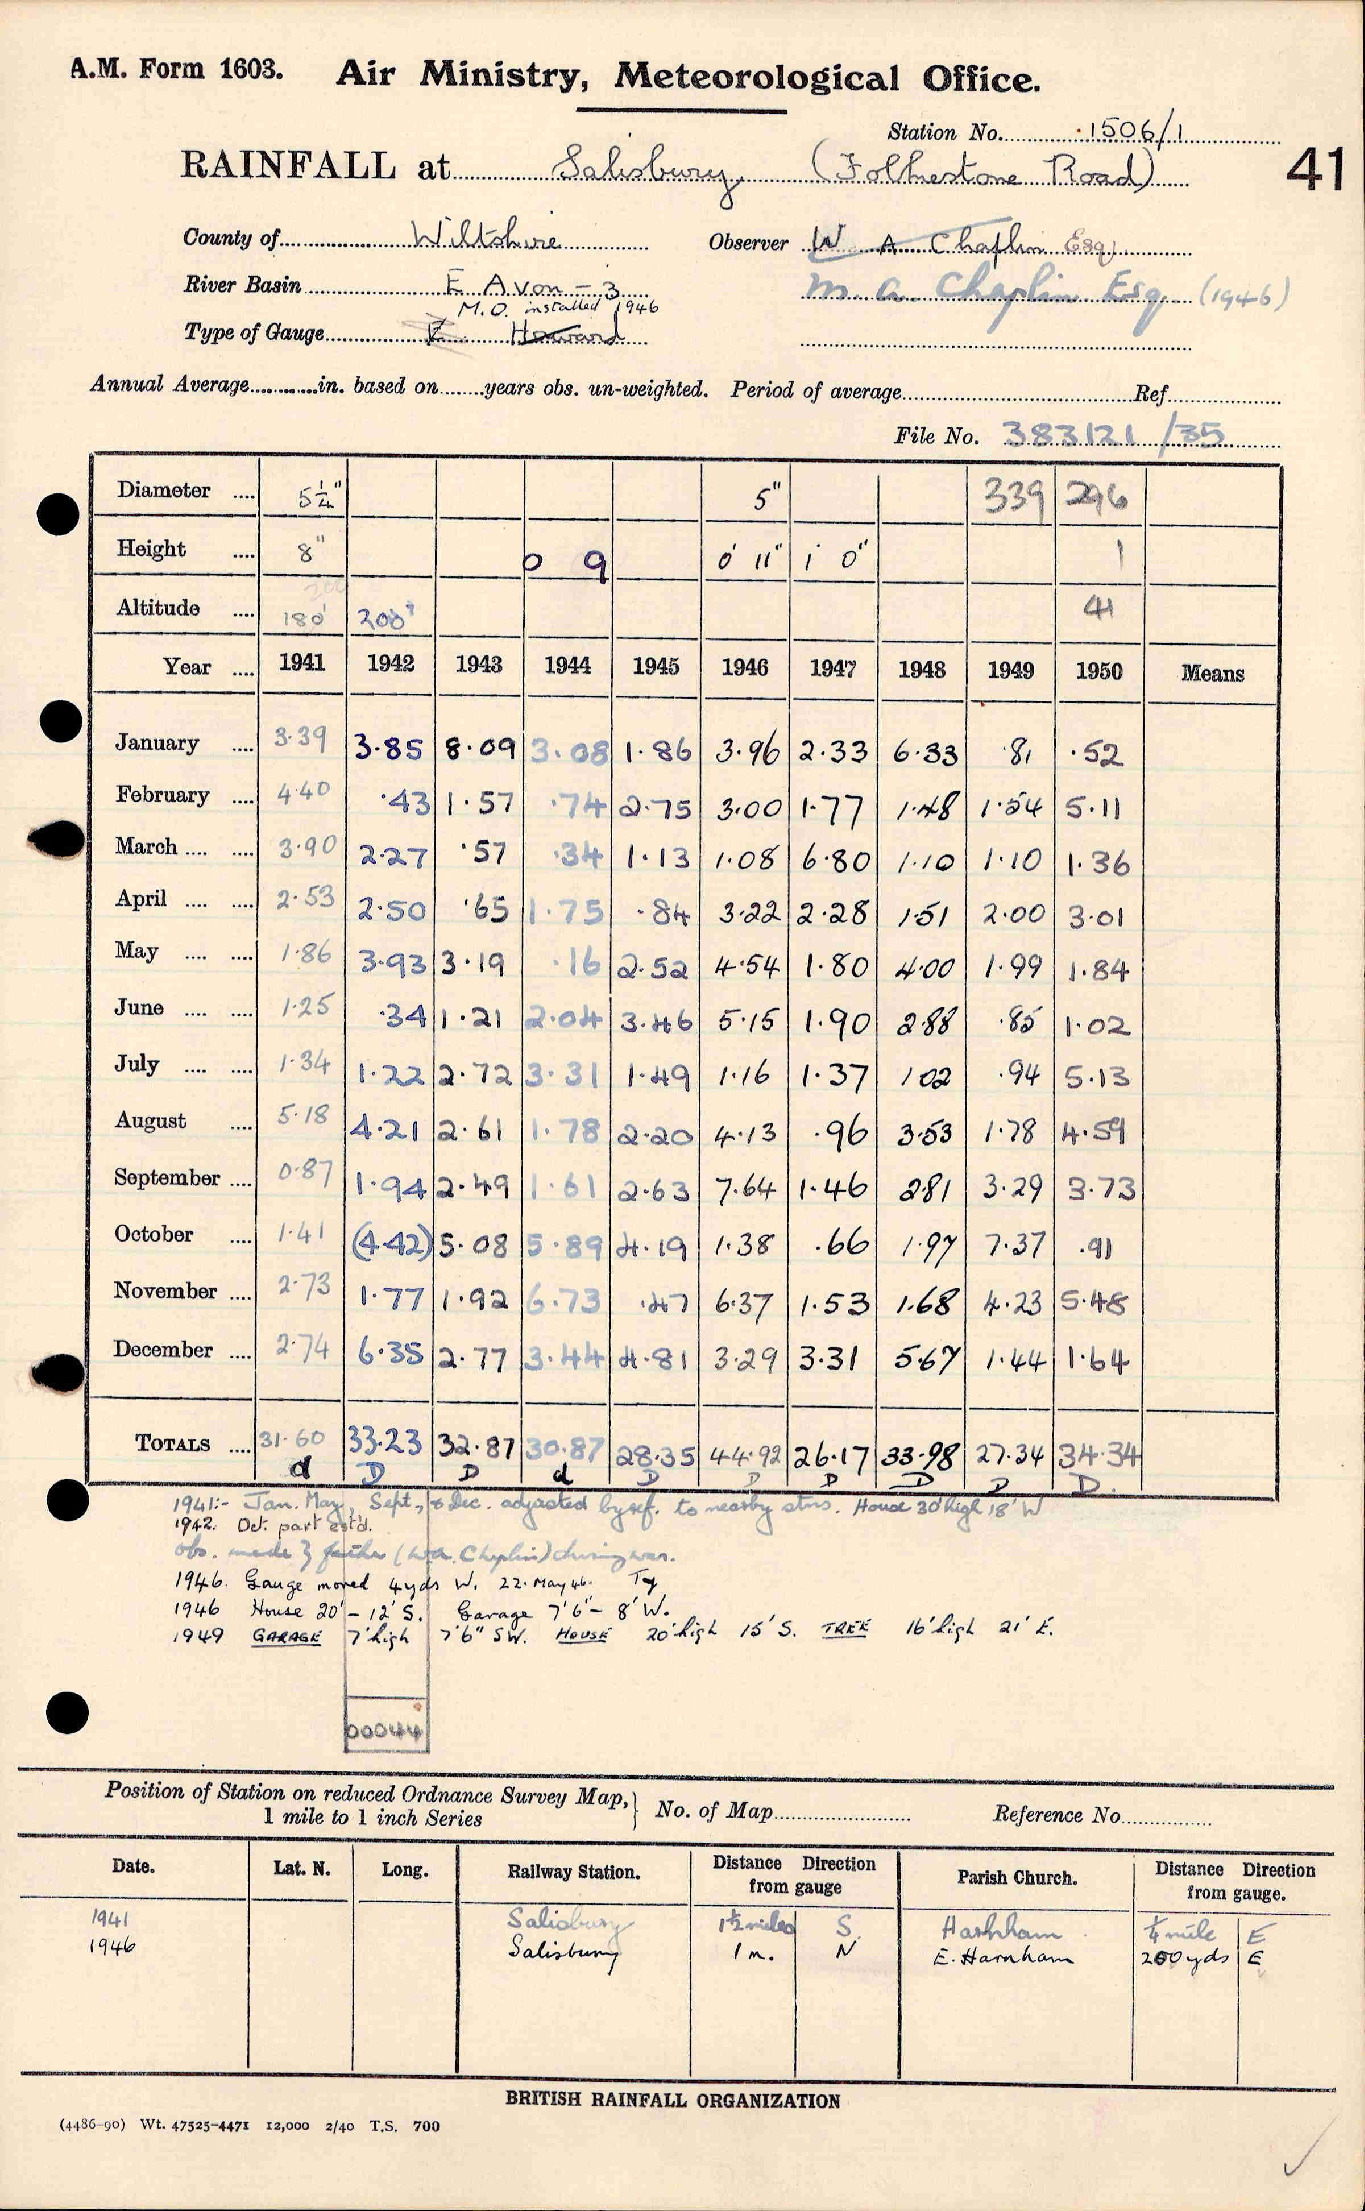 A.M. Form 1603. Air Ministry, Meteorological Office.
Station No. 1506/1
RAINFALL at Salisbury (Folkestone Road) 41
County of Wiltshire Observer W A Chaplin Esq
River Basin E Avon - 3 M. A. Chaplin Esq (1946)
M.O. installed 1946
Type of Gauge E Howard
Annual Average in. based on years obs. un-weighted. Period of average Ref
File No. 383121/35
Diameter .... 5¼" 5" 339 296
Height .... 8" 0 9 0' 11" 1' 0" 1
200
Altitude .... 180' 200' 41
Year .... 1941 1942 1943 1944 1945 1946 1947 1948 1949 1950 Means
January .... 3.39 3.85 8.09 3.08 1.86 3.96 2.33 6.33 .81 .52
February .... 4.40 .43 1.57 .74 2.75 3.00 1.77 1.48 1.54 5.11
March .... .... 3.90 2.27 .57 .34 1.13 1.08 6.80 1.10 1.10 1.36
April .... .... 2.53 2.50 .65 1.75 .84 3.22 2.28 1.51 2.00 3.01
May .... .... 1.86 3.93 3.19 .16 2.52 4.54 1.80 4.00 1.99 1.84
June .... .... 1.25 .34 1.21 2.04 3.46 5.15 1.90 2.88 .85 1.02
July .... .... 1.34 1.22 2.72 3.31 1.49 1.16 1.37 1 02 .94 5.13
August .... 5.18 4.21 2.61 1.78 2.20 4.13 .96 3.53 1.78 4.59
September .... 0.87 1.94 2.49 1.61 2.63 7.64 1.46 2.81 3.29 3.73
October .... 1.41 (4.42) 5.08 5.89 4.19 1.38 .66 1.97 7.37 .91
November .... 2.73 1.77 1.92 6.73 .47 6.37 1.53 1.68 4.23 5.48
December .... 2.74 6.35 2.77 3.44 4.81 3.29 3.31 5.67 1.44 1.64
TOTALS .... 31.60 33.23 32.87 30.87 28.35 44.92 26.17 33.98 27.34 34.34
d D D d D D D D D D.
1941:- Jan. May, Sept., & Dec. adjusted by ref. to nearby stns. House 30' high 18' W
1942. Oct. part est'd.
Obs. made by father (W.A. Chaplin) during war.
1946. Gauge moved 4 yds W. 22. May 46.
1946 House 20' - 12' S. Garage 7'6" - 8' W.
1949 GARAGE 7' high 7'6" SW. HOUSE 20' high 15' S. TREE 16' high 21' E.
00044
Position of Station on reduced Ordnance Survey Map, } No. of Map Reference No.
1 mile to 1 inch Series
Date. Lat. N. Long. Railway Station. Distance Direction from gauge Parish Church. Distance Direction from gauge.
1941 Salisbury 1½ miles S. Harnham ¼ mile E
1946 Salisbury 1 m. N E. Harnham 200 yds E
BRITISH RAINFALL ORGANIZATION
(4486-90) Wt. 47525-4471 12,000 2/40 T.S. 700